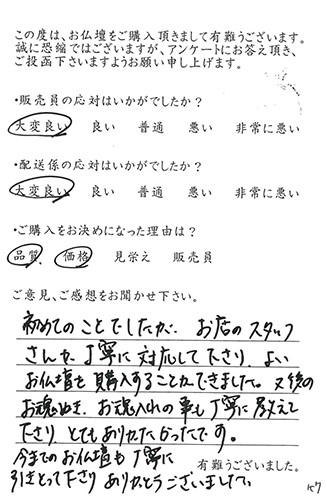 この度は、お仏壇をご購入頂きまして有難うございます。
誠に恐縮ではございますが、アンケートにお答え頂き、
ご投函下さいますようお願い申し上げます。
・販売員の応対はいかがでしたか？
大変良い 良い 普通 悪い 非常に悪い
・配送係の応対はいかがでしたか？
大変良い 良い 普通 悪い 非常に悪い
・ご購入をお決めになった理由は？
品質 価格 見栄え 販売員
ご意見、ご感想をお聞かせ下さい。
初めてのことでしたが、お店のスタッフ
さんも丁寧に対応して下さり、よい
お仏壇を購入することができました。又後の
お魂ぬき、お魂入れの事も丁寧に教えて
下さり とてもありがたかったです。
今までのお仏壇も丁寧に
引きとって下さり ありがとうございました。
有難うございました。